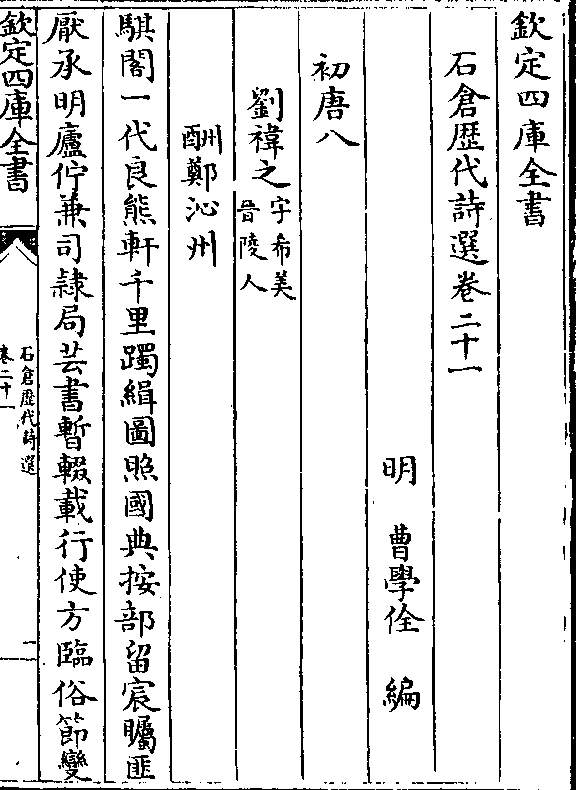 欽定四庫全書
石倉歴代詩選卷二十一
明 曹學佺 編
初唐八
劉禕之字希美
晉陵人
酬鄭沁州
騏閣一代良熊軒千里躅緝圖照國典按部留宸矚匪
厭承明廬佇兼司隷局芸書暫輟載行使方臨俗節變
欽定四庫全書
石倉歴代詩選
卷二十一
一